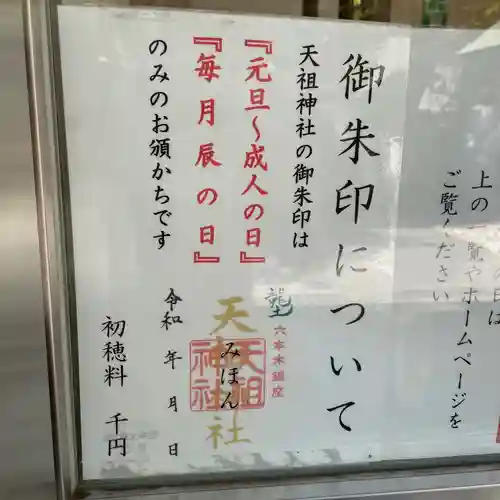 上の一覧や
ホームページを
ご覧ください
御朱印について
天祖神社の御朱印は
『元旦〜成人の日』
『毎月辰の日』
のみのお頒かちです
六本木鎮座
天祖神社
天祖神社
みほん
令和 年 月 日
初穂料 千円